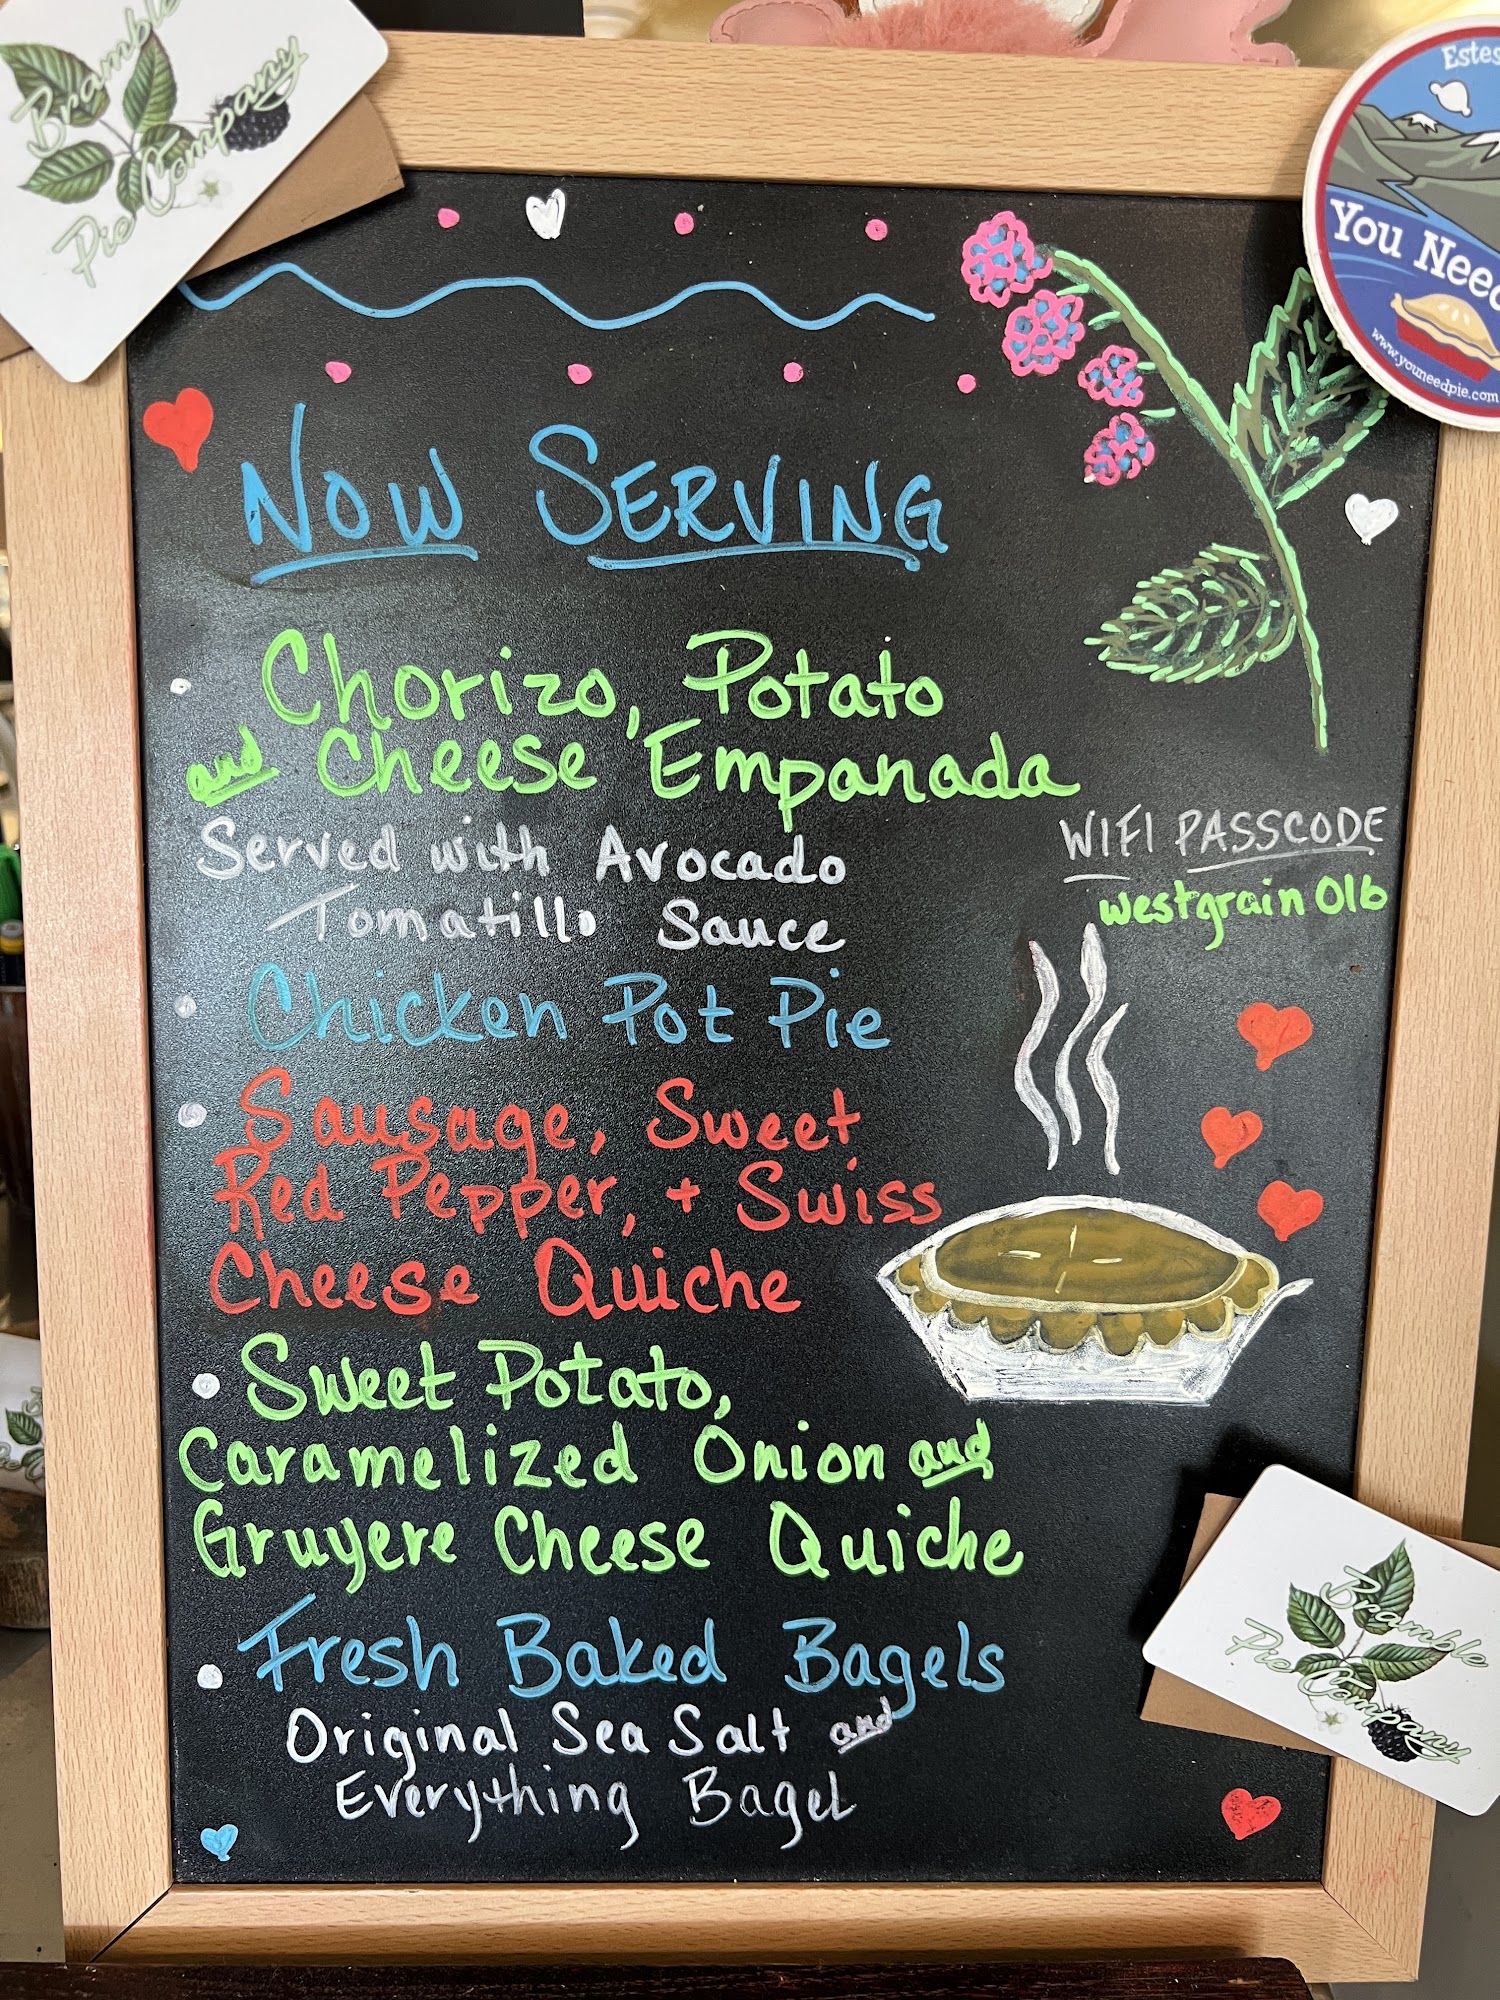 Bramble
Pie Company
Estes
You Need
www.youneedpie.com
Now Serving
Chorizo, Potato
and Cheese Empanada
Served with Avocado
Tomatillo Sauce
WIFI PASSCODE
westgrain016
Chicken Pot Pie
Sausage, Sweet
Red Pepper, + Swiss
Cheese Quiche
Sweet Potato,
Caramelized Onion and
Gruyere Cheese Quiche
Fresh Baked Bagels
Original Sea Salt and
Everything Bagel
Bramble
Pie Company